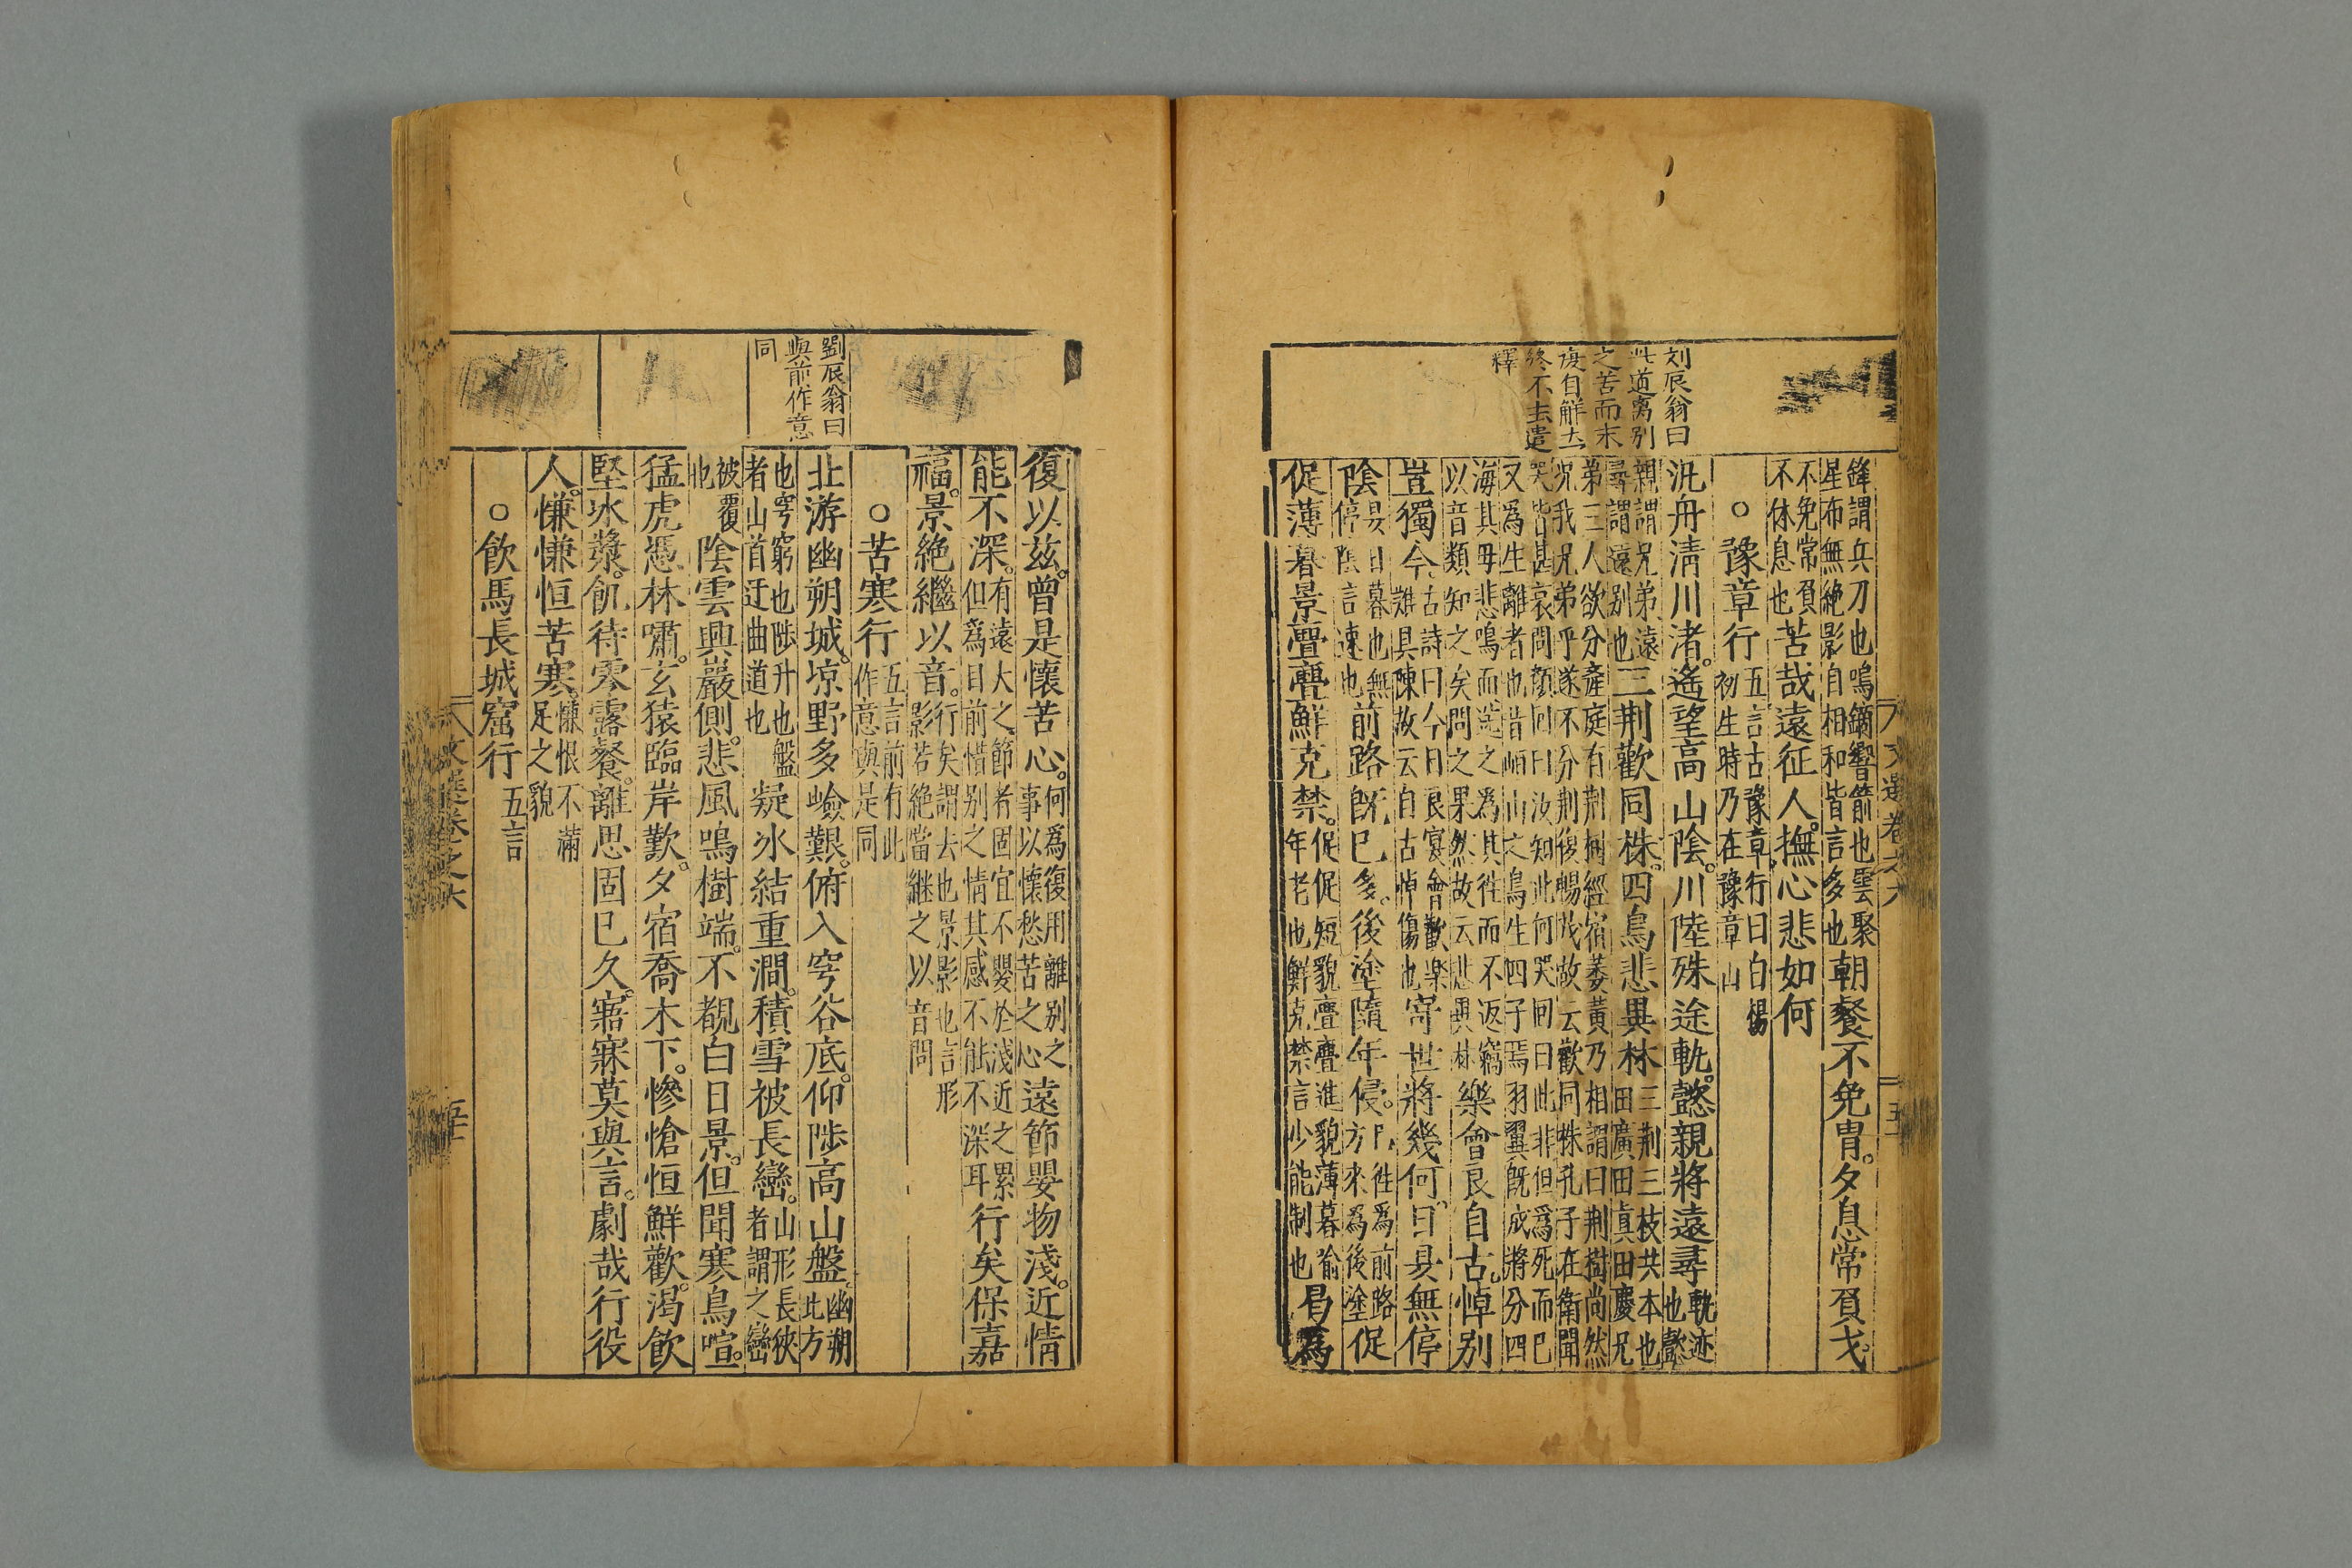 刘辰翁曰
此道离别
之苦而末
復自解十二
終不去遣
釋
鋒謂兵刀也嗚鏑響箭也雲聚
星布無絶影自相和皆言多也
朝餐不免胄。夕息常負戈。
不免常負
不休息也
苦哉遠征人。撫心悲如何
○豫章行
五言古豫章行曰白楊
初生時乃在豫章山
汎舟清川渚。遙望高山陰。川陸殊途軌。懿親將遠尋
軌迹
也懿
親謂兄弟遠
尋謂遠别也
三荆歡同株。四鳥悲異林
三荆三枝共本也
田廣田真田慶兄
弟三人欲分産庭有荆樹經宿萎黃乃相謂曰荆樹尚然
况我兄弟乎遂不分荆復暢茂故云歡同株孔子在衛聞
哭皆甚哀問顔回曰汝知此何哭回曰此非但爲死而已
又爲生離者也昔峘山之鳥生四子焉羽翼既成將分四
海其母悲鳴而送之爲其徃而不返竊
以音類知之矣問之果然故云悲異林
樂會良自古。悼别
豈獨今
古詩曰今日良宴會歡樂
難具陳故云自古悼傷也
寄世將幾何。日昃無停
陰
昃日暮也無
停陰言速也
前路既已多。後塗隨年侵。
已徃爲前路
方來為後塗
促
促薄暮景亹亹鮮克禁。
促促短貌亹亹進貌薄暮喻
年老也鮮克禁言少能制也
曷為
文選卷之六
劉辰翁曰
與前作意
同
復以兹。曾是懷苦心。
何爲復用離别之
事以懷愁苦之心
遠節嬰物淺。近情
能不深。
有遠大之節者固宜不嬰於淺近之累
但為目前惜别之情其感不能不深耳
行矣保嘉
福。景絶繼以音。
行矣謂去也景影也言形
影若絶當継之以音問
○苦寒行
五言前有此
作意與是同
北游幽朔城。凉野多嶮艱。俯入穹谷底。仰陟高山盤。
幽朔
北方
也穹窮也陟升也盤
者山首迂曲道也
凝氷結重澗。積雪被長巒。
山形長狹
者謂之巒
被覆
也
陰雲興巖側。悲風鳴樹端。不覩白日景。但聞寒鳥喧。
猛虎憑林嘯。玄猿臨岸歎。夕宿喬木下。慘愴恒鮮歡。渴飲
堅氷漿。飢待零露餐。離思固已久。寤寐莫與言。劇哉行役
人。慊慊恒苦寒。
慊恨不滿
足之貌
○飲馬長城窟行
五言
文選卷之六